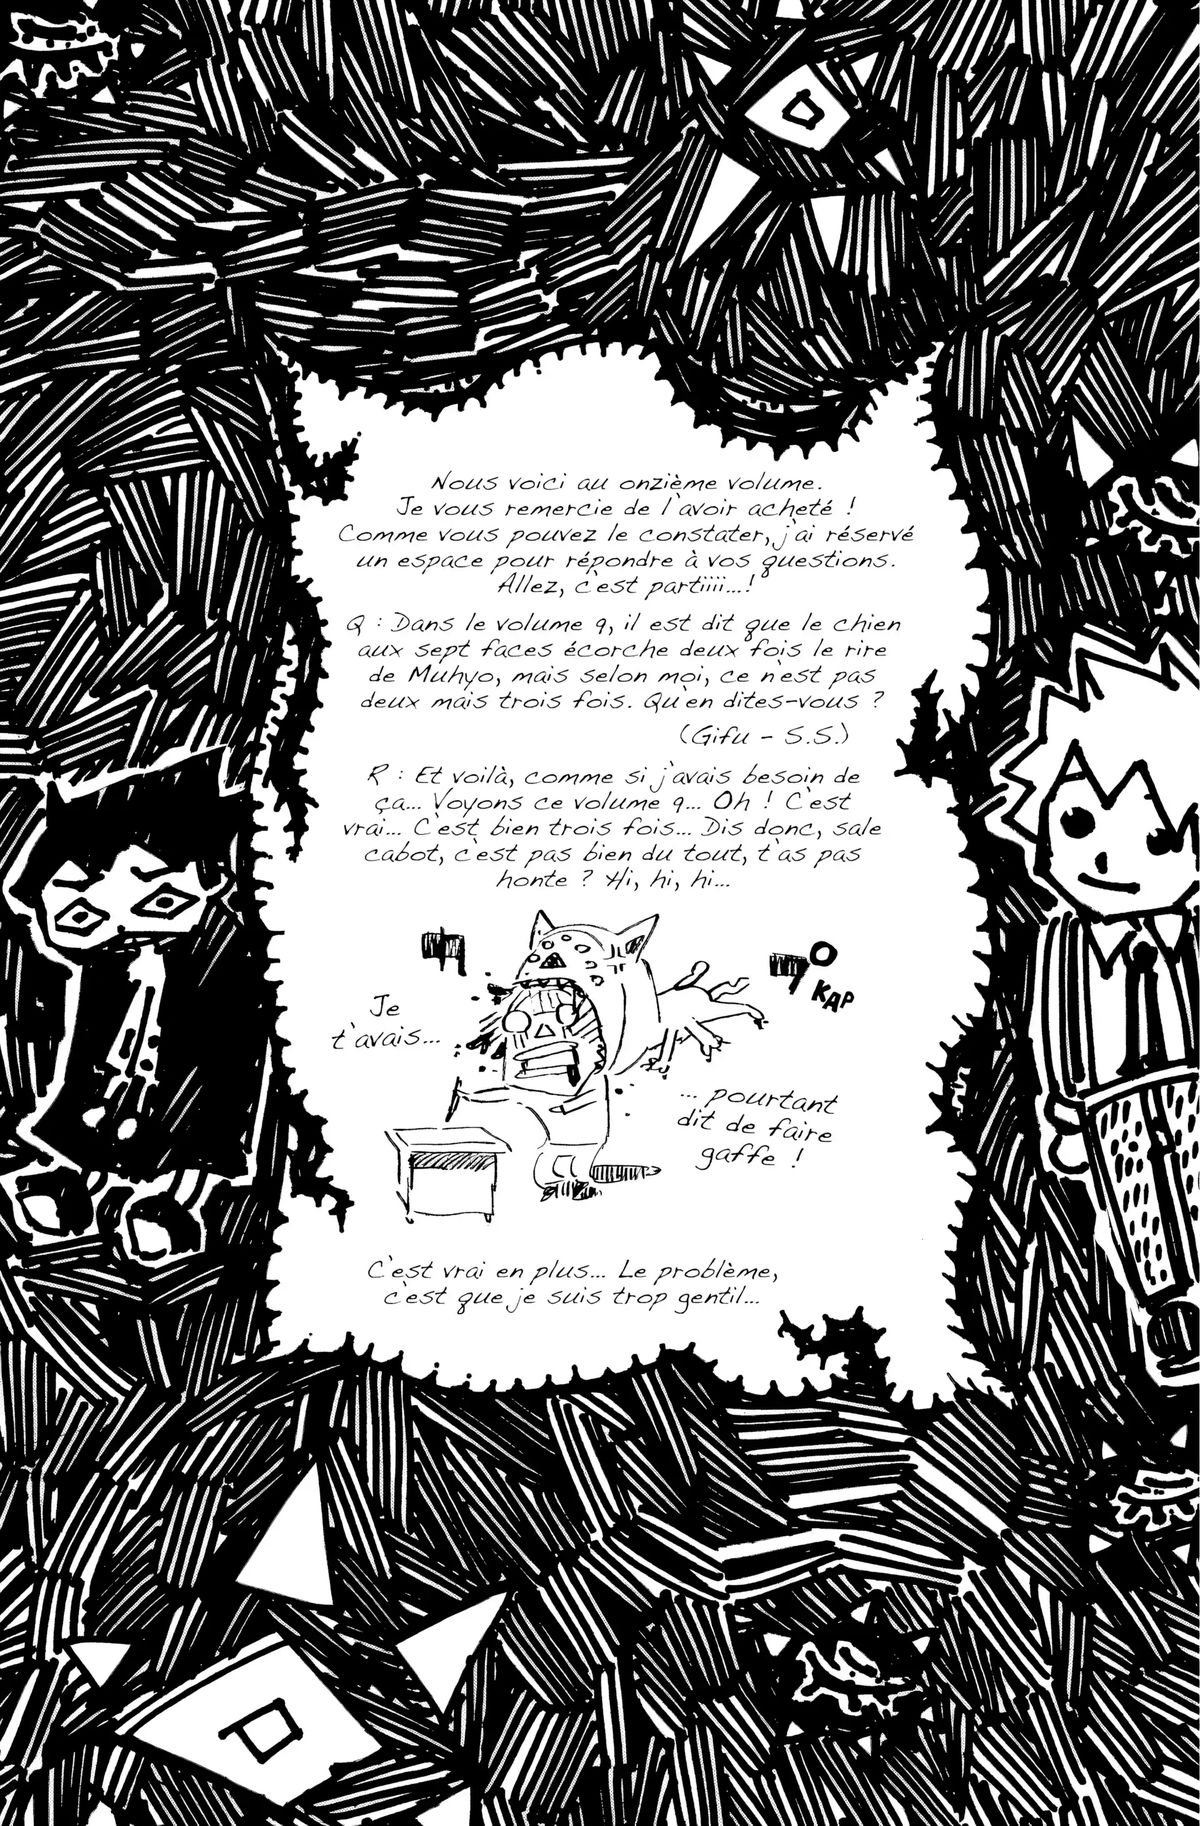 Nous voici au onzième volume.
Je vous remercie de l'avoir acheté !
Comme vous pouvez le constater, j'ai réservé
un espace pour répondre à vos questions.
Allez, c'est partiiii...!
Q : Dans le volume 9, il est dit que le chien
aux sept faces écorche deux fois le rire
de Muhyo, mais selon moi, ce n'est pas
deux mais trois fois. Qu'en dites-vous ?
(Gifu - S.S.)
R : Et voilà, comme si j'avais besoin de
ça... Voyons ce volume 9... Oh ! C'est
vrai... C'est bien trois fois... Dis donc, sale
cabot, c'est pas bien du tout, t'as pas
honte ? Hi, hi, hi...
KAP
Je
t'avais...
... pourtant
dit de faire
gaffe !
C'est vrai en plus... Le problème,
c'est que je suis trop gentil...